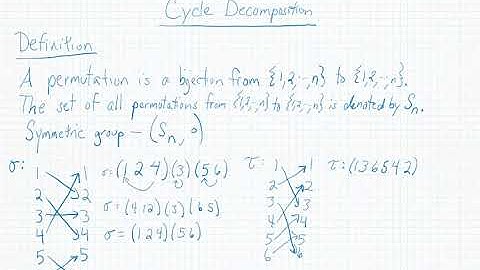 Cycle Decomposition
Definition
A permutation is a bjection from {1,2,...,n} to {1,2,...,n}.
The set of all permutations from {1,2,...,n} to {1,2,...,n} is denoted by Sn.
Symmetric group - (Sn, o)
σ: 1 1 σ=(1 2 4)(3)(5 6) τ: 1 1 τ:(136542)
2 2 2 2
3 3 σ=(412)(3)(65) 3 3
4 4 σ=(124)(56) 4 4
5 5 5 5
6 6